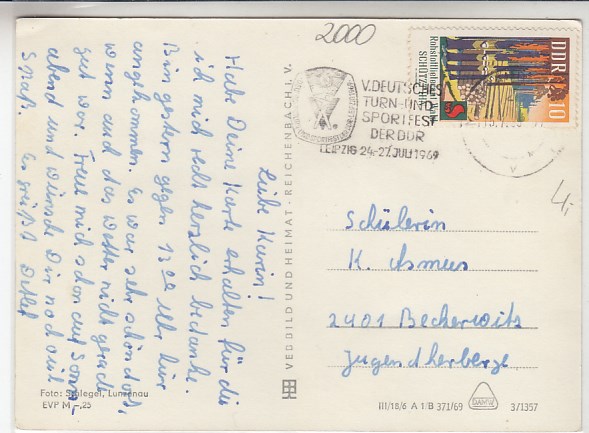 2000
DDR 10
V. DEUTSCHES
TURN- UND
SPORTFEST
DER DDR
LEIPZIG 24.-27. JULI 1969
Liebe Karin!
Habe Deine Karte erhalten für die
ich mich recht herzlich bedanke.
Bin gestern gegen 13 00 Uhr hier
angekommen. Es war sehr schön dort,
wenn auch das Wetter nicht gerade
gut war. Freue mich schon auf Sonn-
abend und wünsche Dir noch viel
Spaß. Es grüßt Detlef
VEB BILD UND HEIMAT · REICHENBACH I. V.
Schülerin
K. Asmus
2401 Beckerwitz
Jugendherberge
Foto: Schlegel, Lunzenau
EVP M -,25
III/18/6 A 1/B 371/69
DAMW
3/1357